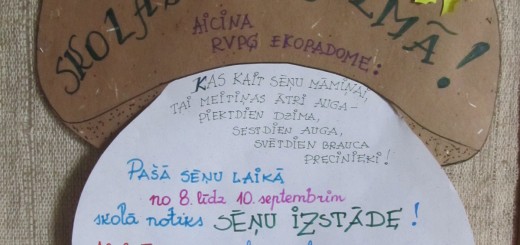 SKOLAS
ZMĀ!
AICINA
RVPĢ EKOPADOME:
KAS KAIT SĒŅU MĀMIŅAI,
TAI MEITIŅAS ĀTRI AUGA–
PIEKTDIEN DZIMA,
SESTDIEN AUGA,
SVĒTDIEN BRAUCA
PRECINIEKI!
PAŠĀ SĒŅU LAIKĀ
no 8. līdz 10. septembrim
skolā notiks SĒŅU IZSTĀDE!